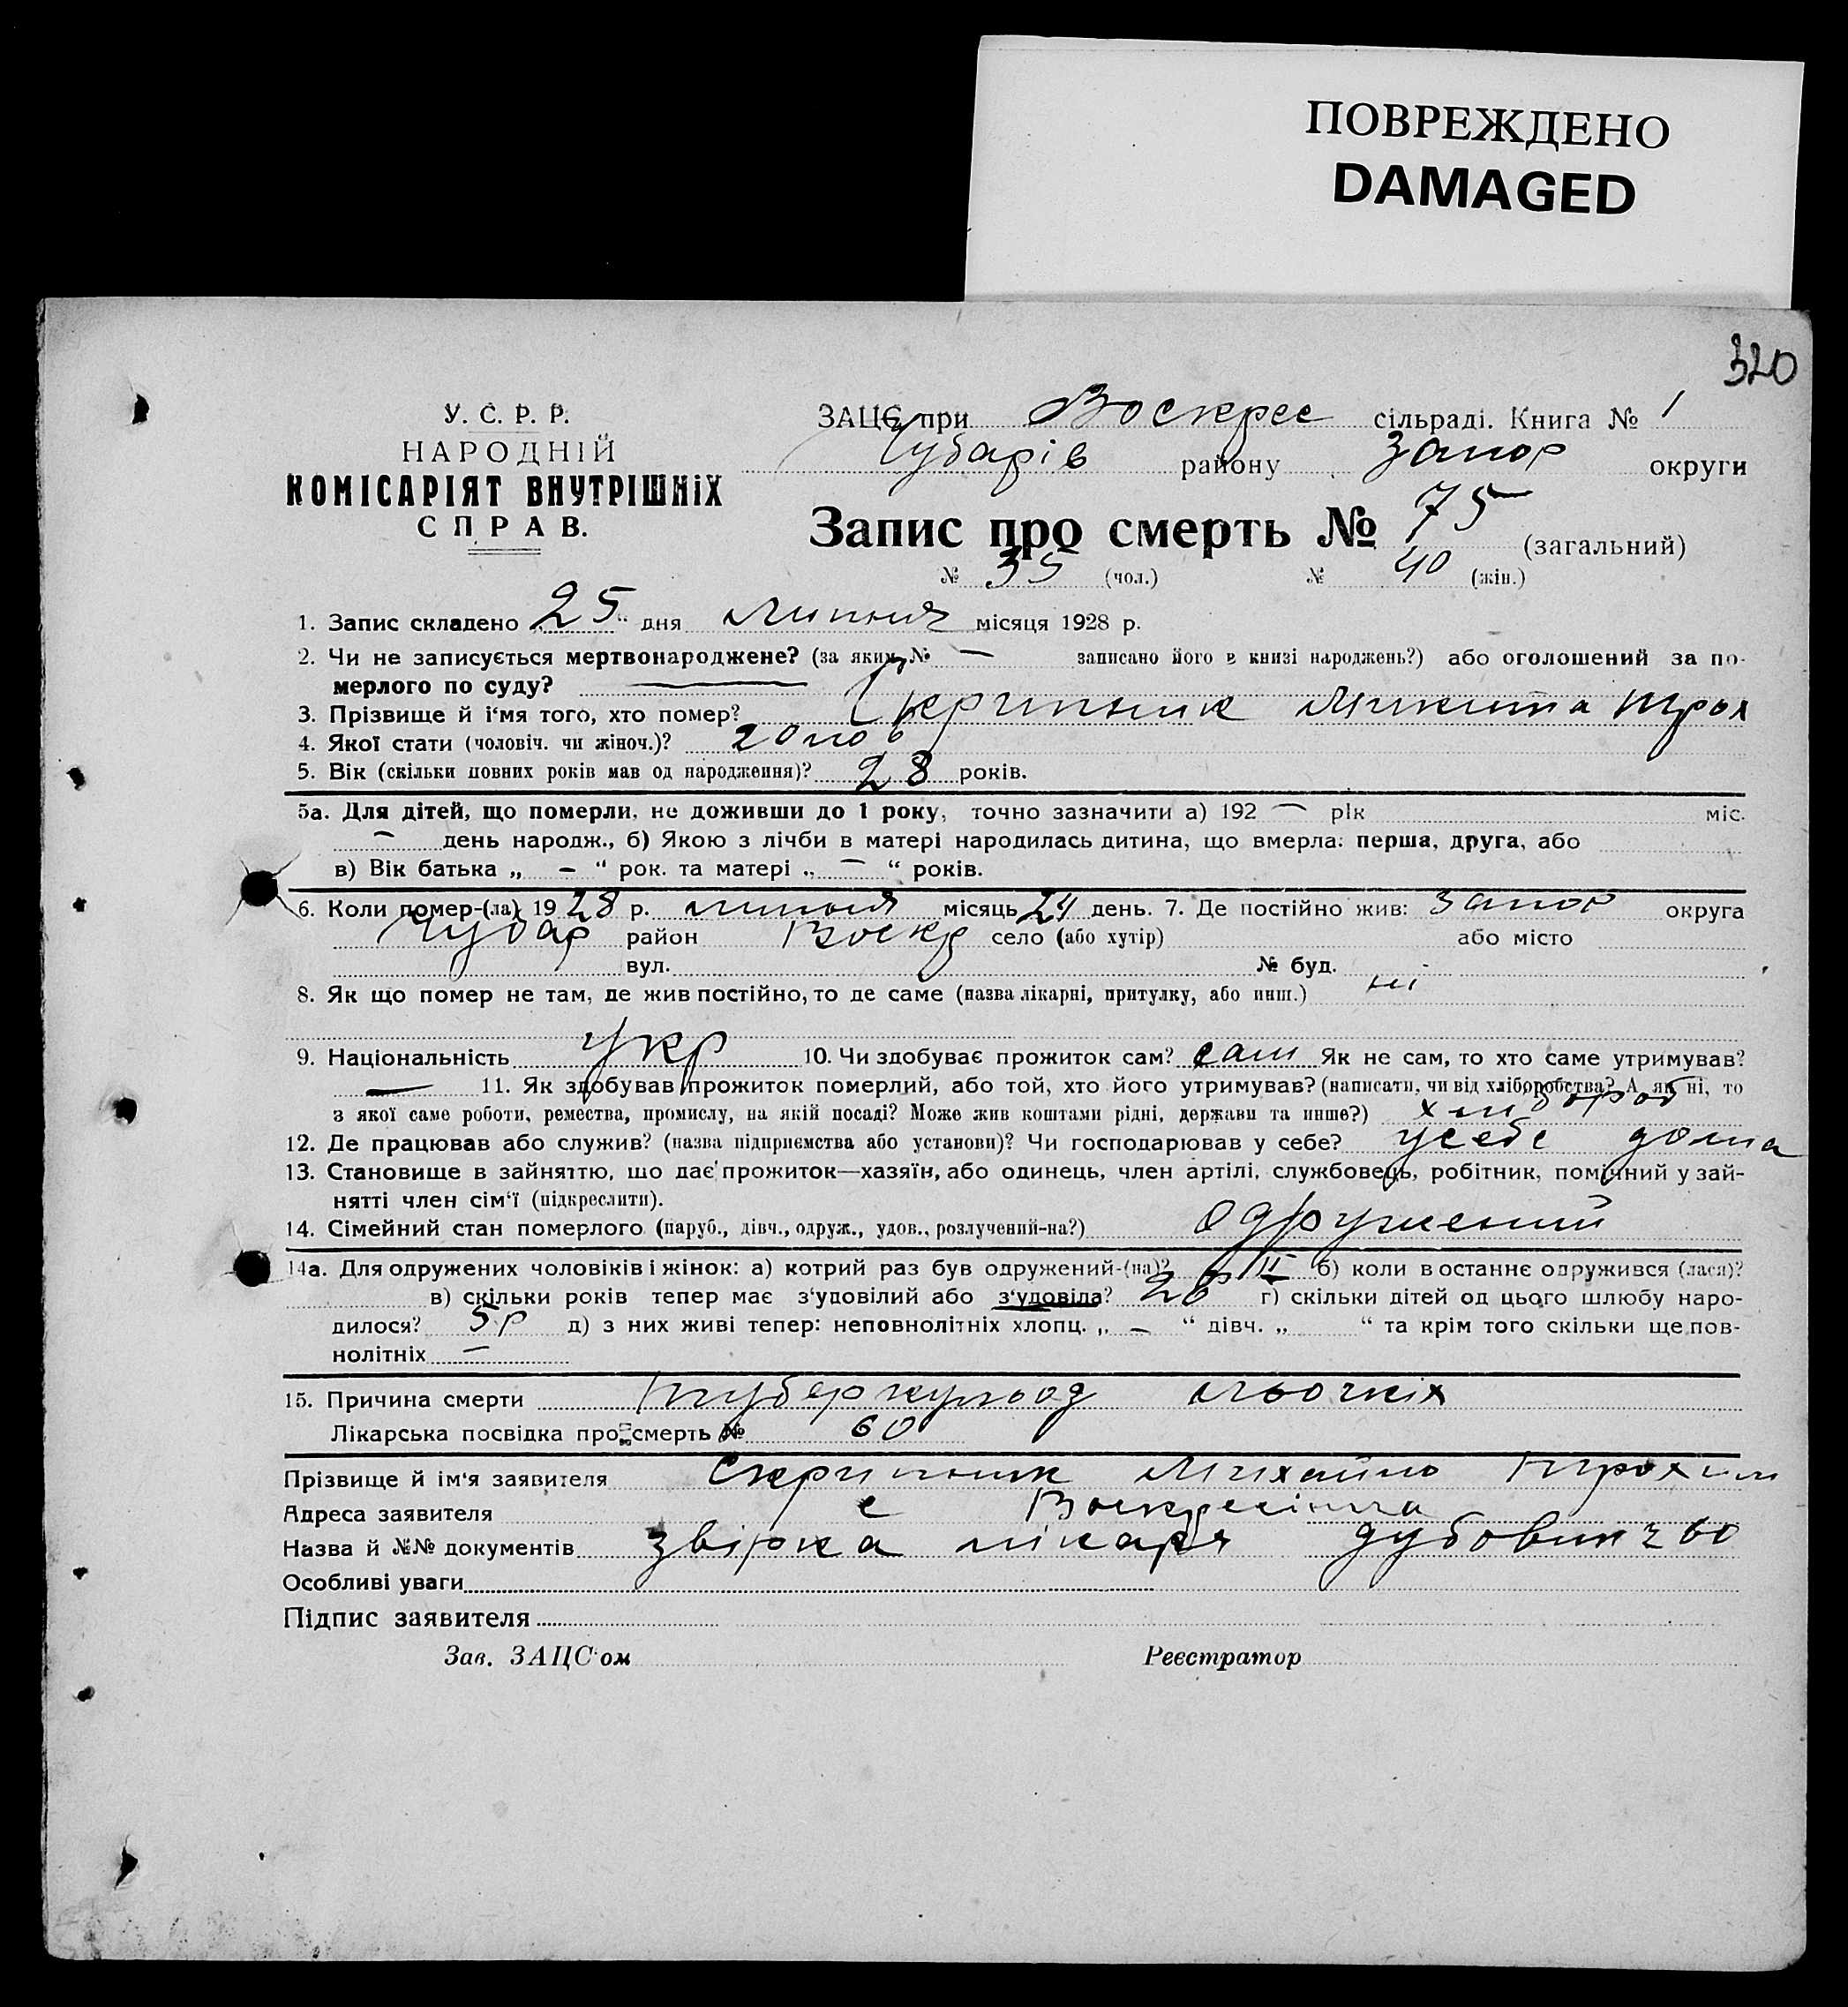 ПОВРЕЖДЕНО
DAMAGED
320
У. С. Р. Р.
НАРОДНІЙ
КОМІСАРІЯТ ВНУТРІШНІХ
СПРАВ.
ЗАЦС при Воскрес сільраді. Книга № 1
Чубарів району Запор округи
Запис про смерть № 75 (загальний)
№ 35 (чол.) № 40 (жін.)
1. Запис складено „25“ дня липня місяця 1928 р.
2. Чи не записується мертвонароджене? (за яким № — записано його в книзі народжень?) або оголошений за по-
мерлого по суду? —
3. Прізвище й і'мя того, хто помер? Скрипник Микита Трох
4. Якої стати (чоловіч. чи жіноч.)?
5. Вік (скільки повних років мав од народження)? 28 років.
5а. Для дітей, що померли, не доживши до 1 року, точно зазначити а) 192 — рік міс.
— день народж., б) Якою з лічби в матері народилась дитина, що вмерла: перша, друга, або
в) Вік батька „ — “ рок. та матері „ — “ років.
6. Коли помер-(ла) 1928 р. липня місяць 24 день. 7. Де постійно жив: Запор округа
Чубар район Воскр село (або хутір) або місто
вул. № буд.
8. Як що помер не там, де жив постійно, то де саме (назва лікарні, притулку, або инш.) ні
9. Національність укр 10. Чи здобуває прожиток сам? сам Як не сам, то хто саме утримував?
— 11. Як здобував прожиток померлий, або той, хто його утримував? (написати, чи від хліборобства? А як ні, то
з якої саме роботи, ремества, промислу, на якій посаді? Може жив коштами рідні, держави та инше?) хлібороб
12. Де працював або служив? (назва підприємства або установи)? Чи господарював у себе? у себе дома
13. Становище в зайняттю, що дає прожиток—хазяїн, або одинець, член артілі, службовець, робітник, помічний у зай-
нятті член сім'ї (підкреслити).
14. Сімейний стан померлого (паруб., дівч., одруж., удов., розлучений-на?) одружений
14а. Для одружених чоловіків і жінок: а) котрий раз був одружений-(на)? II б) коли в останнє одружився (лася)?
в) скільки років тепер має з'удовілий або з'удовіла? 26 г) скільки дітей од цього шлюбу наро-
дилося? 5 р д) з них живі тепер: неповнолітніх хлопц. „ — “ дівч. „ “ та крім того скільки ще пов-
нолітніх —
15. Причина смерти туберкульод льочків
Лікарська посвідка про смерть № 60
Прізвище й ім'я заявителя Скрипник Михайло Трохим
Адреса заявителя с Воскресінка
Назва й №№ документів звірка лікаря Дубовик 60
Особливі уваги
Підпис заявителя
Зав. ЗАЦС'ом Реєстратор